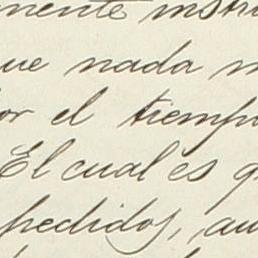 mente instru
que nada m
or el tiempo
El cual es q
pedidos, au